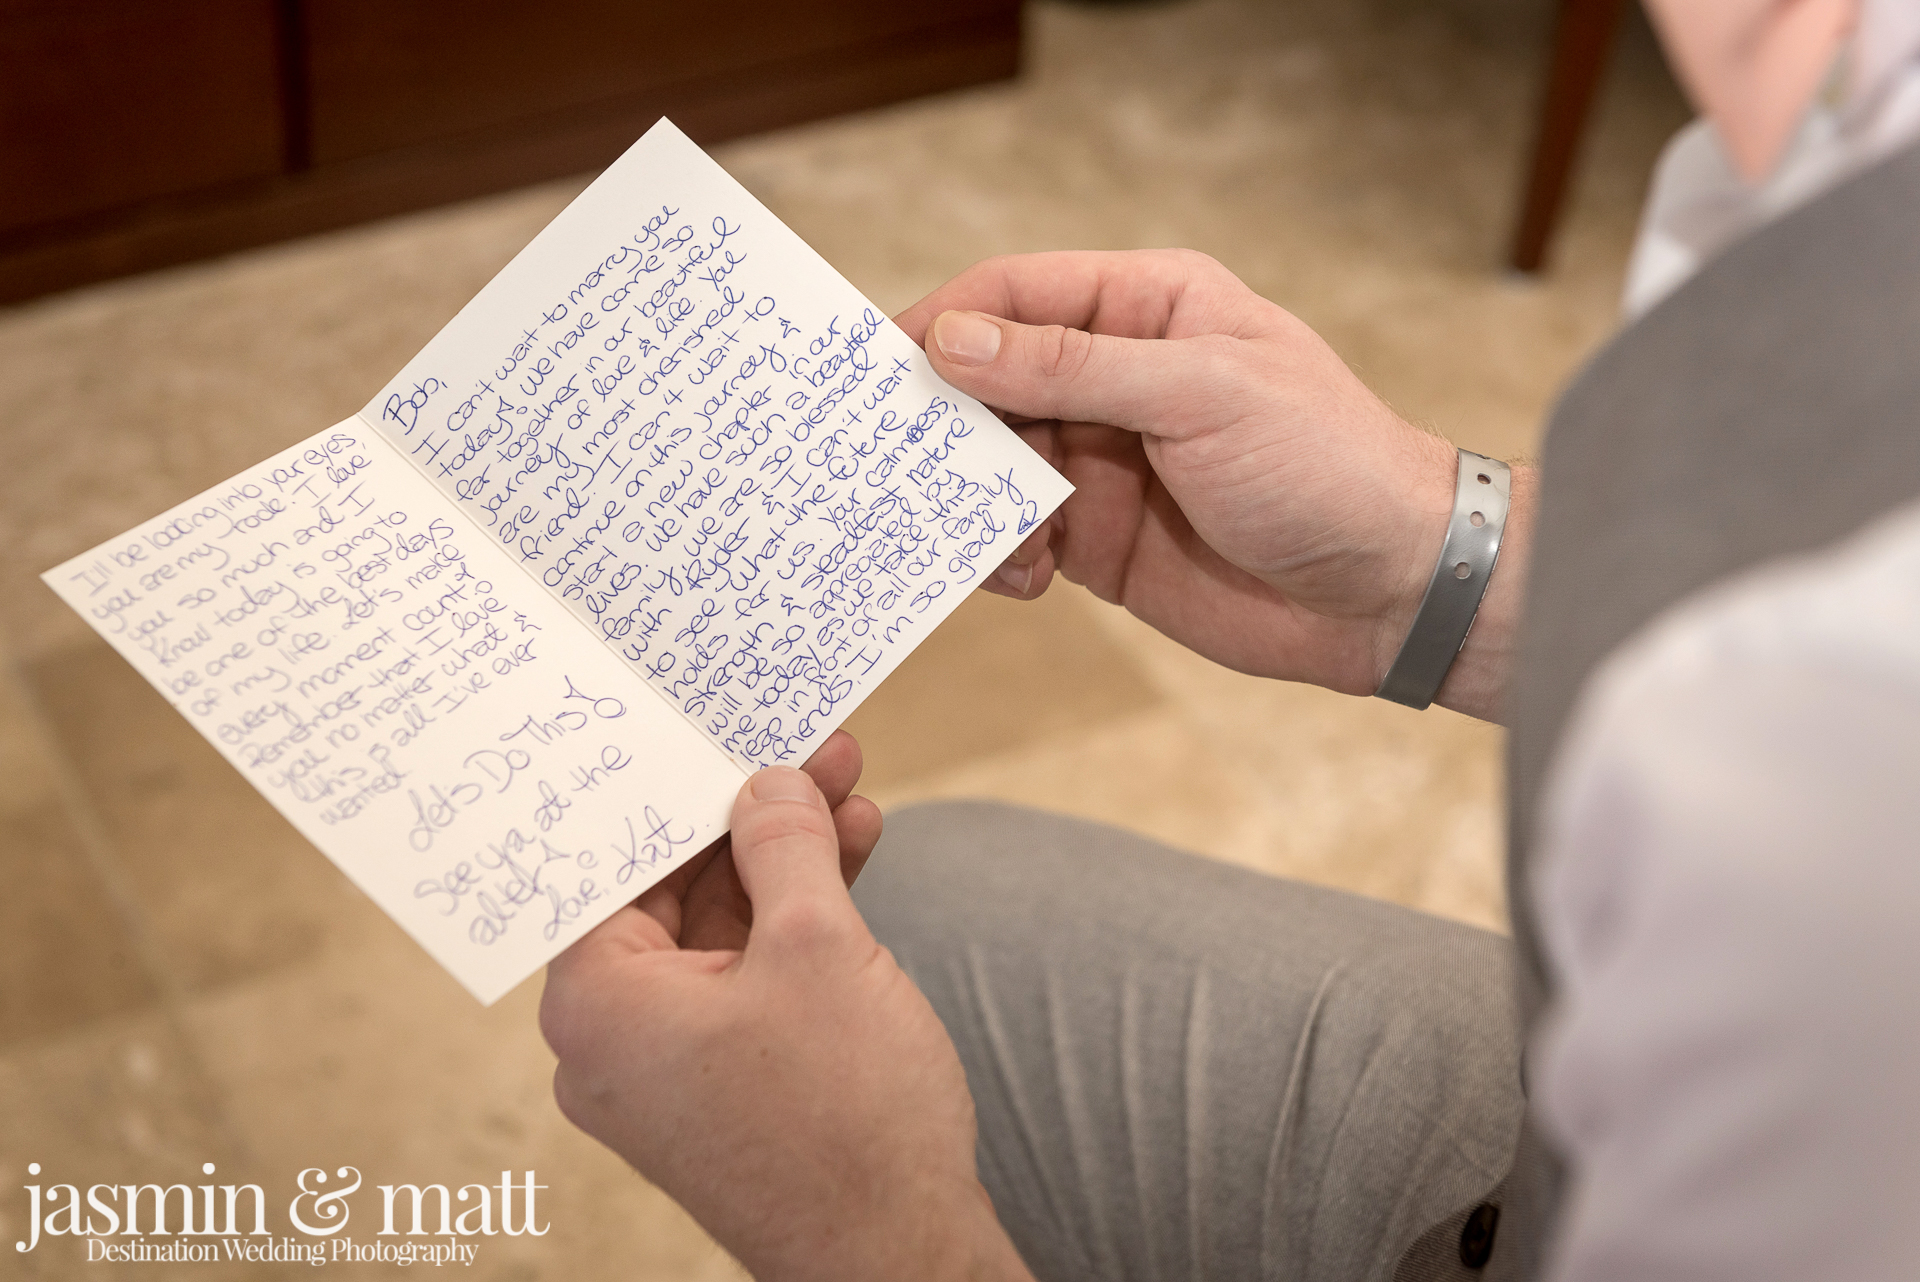 Bob,
I can't wait to marry you
today! We have come so
far together in our beautiful
journey of love & life. You
are my most cherished
friend. I can't wait to
continue on this journey &
start a new chapter in our
lives. We have such a beautiful
family, we are so blessed
with Ryder & I can't wait
to see what the future
holds for us. Your calmness,
strength & steadfast nature
will be so appreciated by
me today as we take this
leap in front of all our family
& friends. I'm so glad
I'll be looking into your eyes,
you are my rock! I love
you so much and I
know today is going to
be one of the best days
of my life. Let's make
every moment count &
remember that I love
you no matter what &
this is all I've ever
wanted
Let's Do This!
See ya at the
alter!
Love, Kat
jasmin & matt
Destination Wedding Photography